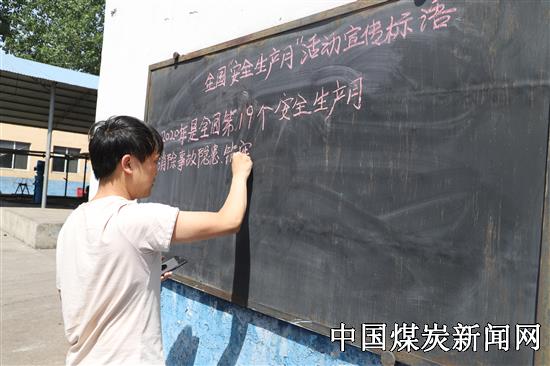 全国"安全生产月"活动宣传标语
2020年是全国第19个安全生产月
消除事故隐患、筑牢
中国煤炭新闻网